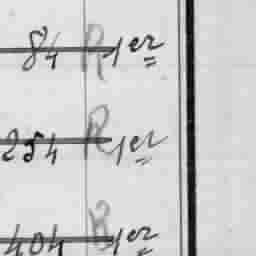 84 R 1er
254 R 1er
404 R 1er